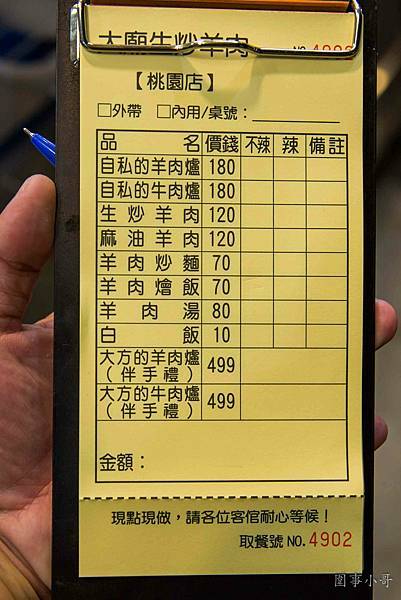 大廟生炒羊肉 NO. 4902
【桃園店】
□外帶 □內用/桌號：
品名 價錢 不辣 辣 備註
自私的羊肉爐 180
自私的牛肉爐 180
生炒羊肉 120
麻油羊肉 120
羊肉炒麵 70
羊肉燴飯 70
羊肉湯 80
白飯 10
大方的羊肉爐（伴手禮） 499
大方的牛肉爐（伴手禮） 499
金額：
現點現做，請各位客倌耐心等候！
取餐號 NO. 4902
圍事小哥